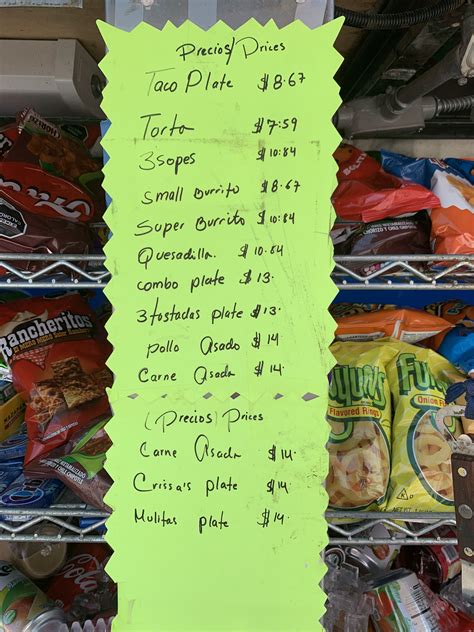 Precios/Prices
Taco Plate $8.67
Torta $7.59
3 Sopes $10.84
Small Burrito $8.67
Super Burrito $10.84
Quesadilla. $10.84
combo plate $13.
3 tostadas plate $13.
pollo Asado $14.
Carne Asada $14.
(Precios) Prices
Carne Asada $14.
Crissa's plate $14.
Mulitas plate $14.
Rancheritos
Funyuns
Flavored Rings
Onion